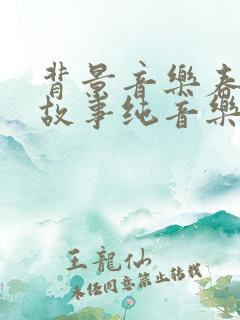 背景音樂春
故事纯音樂
王龍仙
未经同意禁止转载